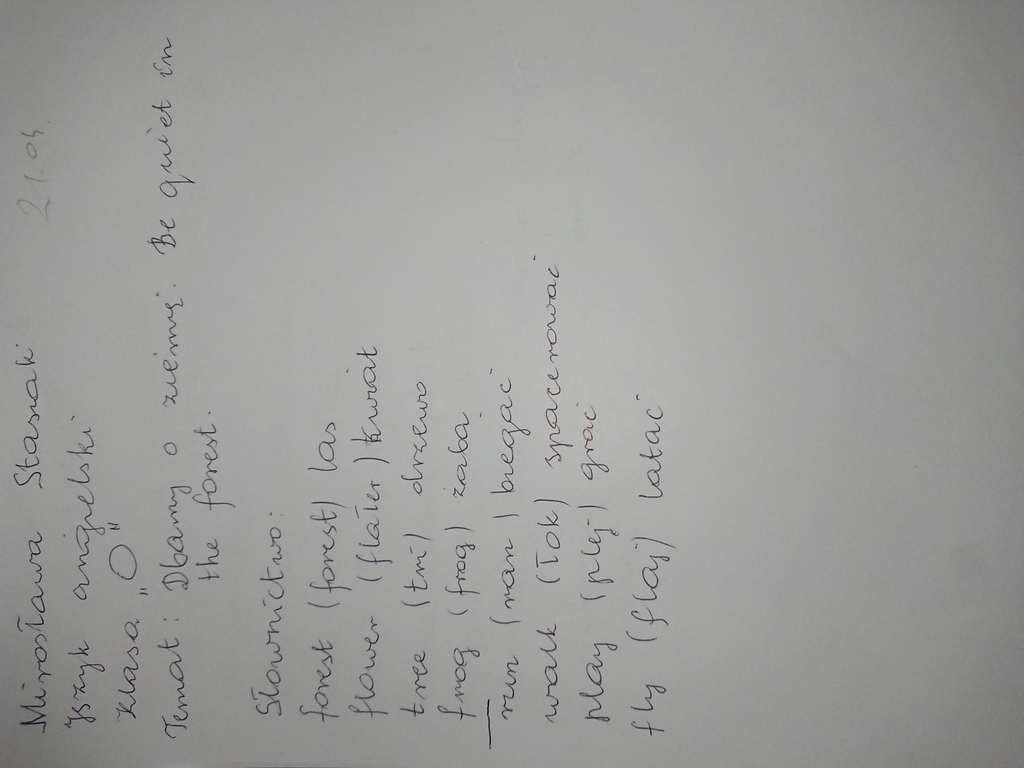 Mirosława Stasiak 21.04.
Język angielski
Klasa "O"
Temat: Dbamy o ziemię. Be quiet in
the forest.
Słownictwo:
forest (forest) las
flower (flałer) kwiat
tree (tri) drzewo
frog (frog) żaba
run (ran) biegać
walk (łok) spacerować
play (plej) grać
fly (flaj) latać